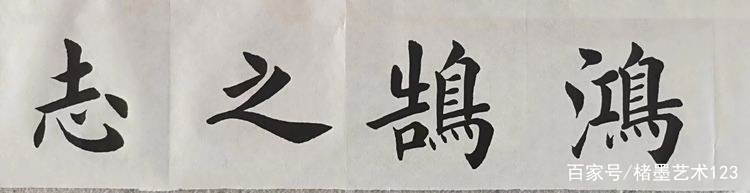 鴻鵠之志
百家号/楮墨艺术123